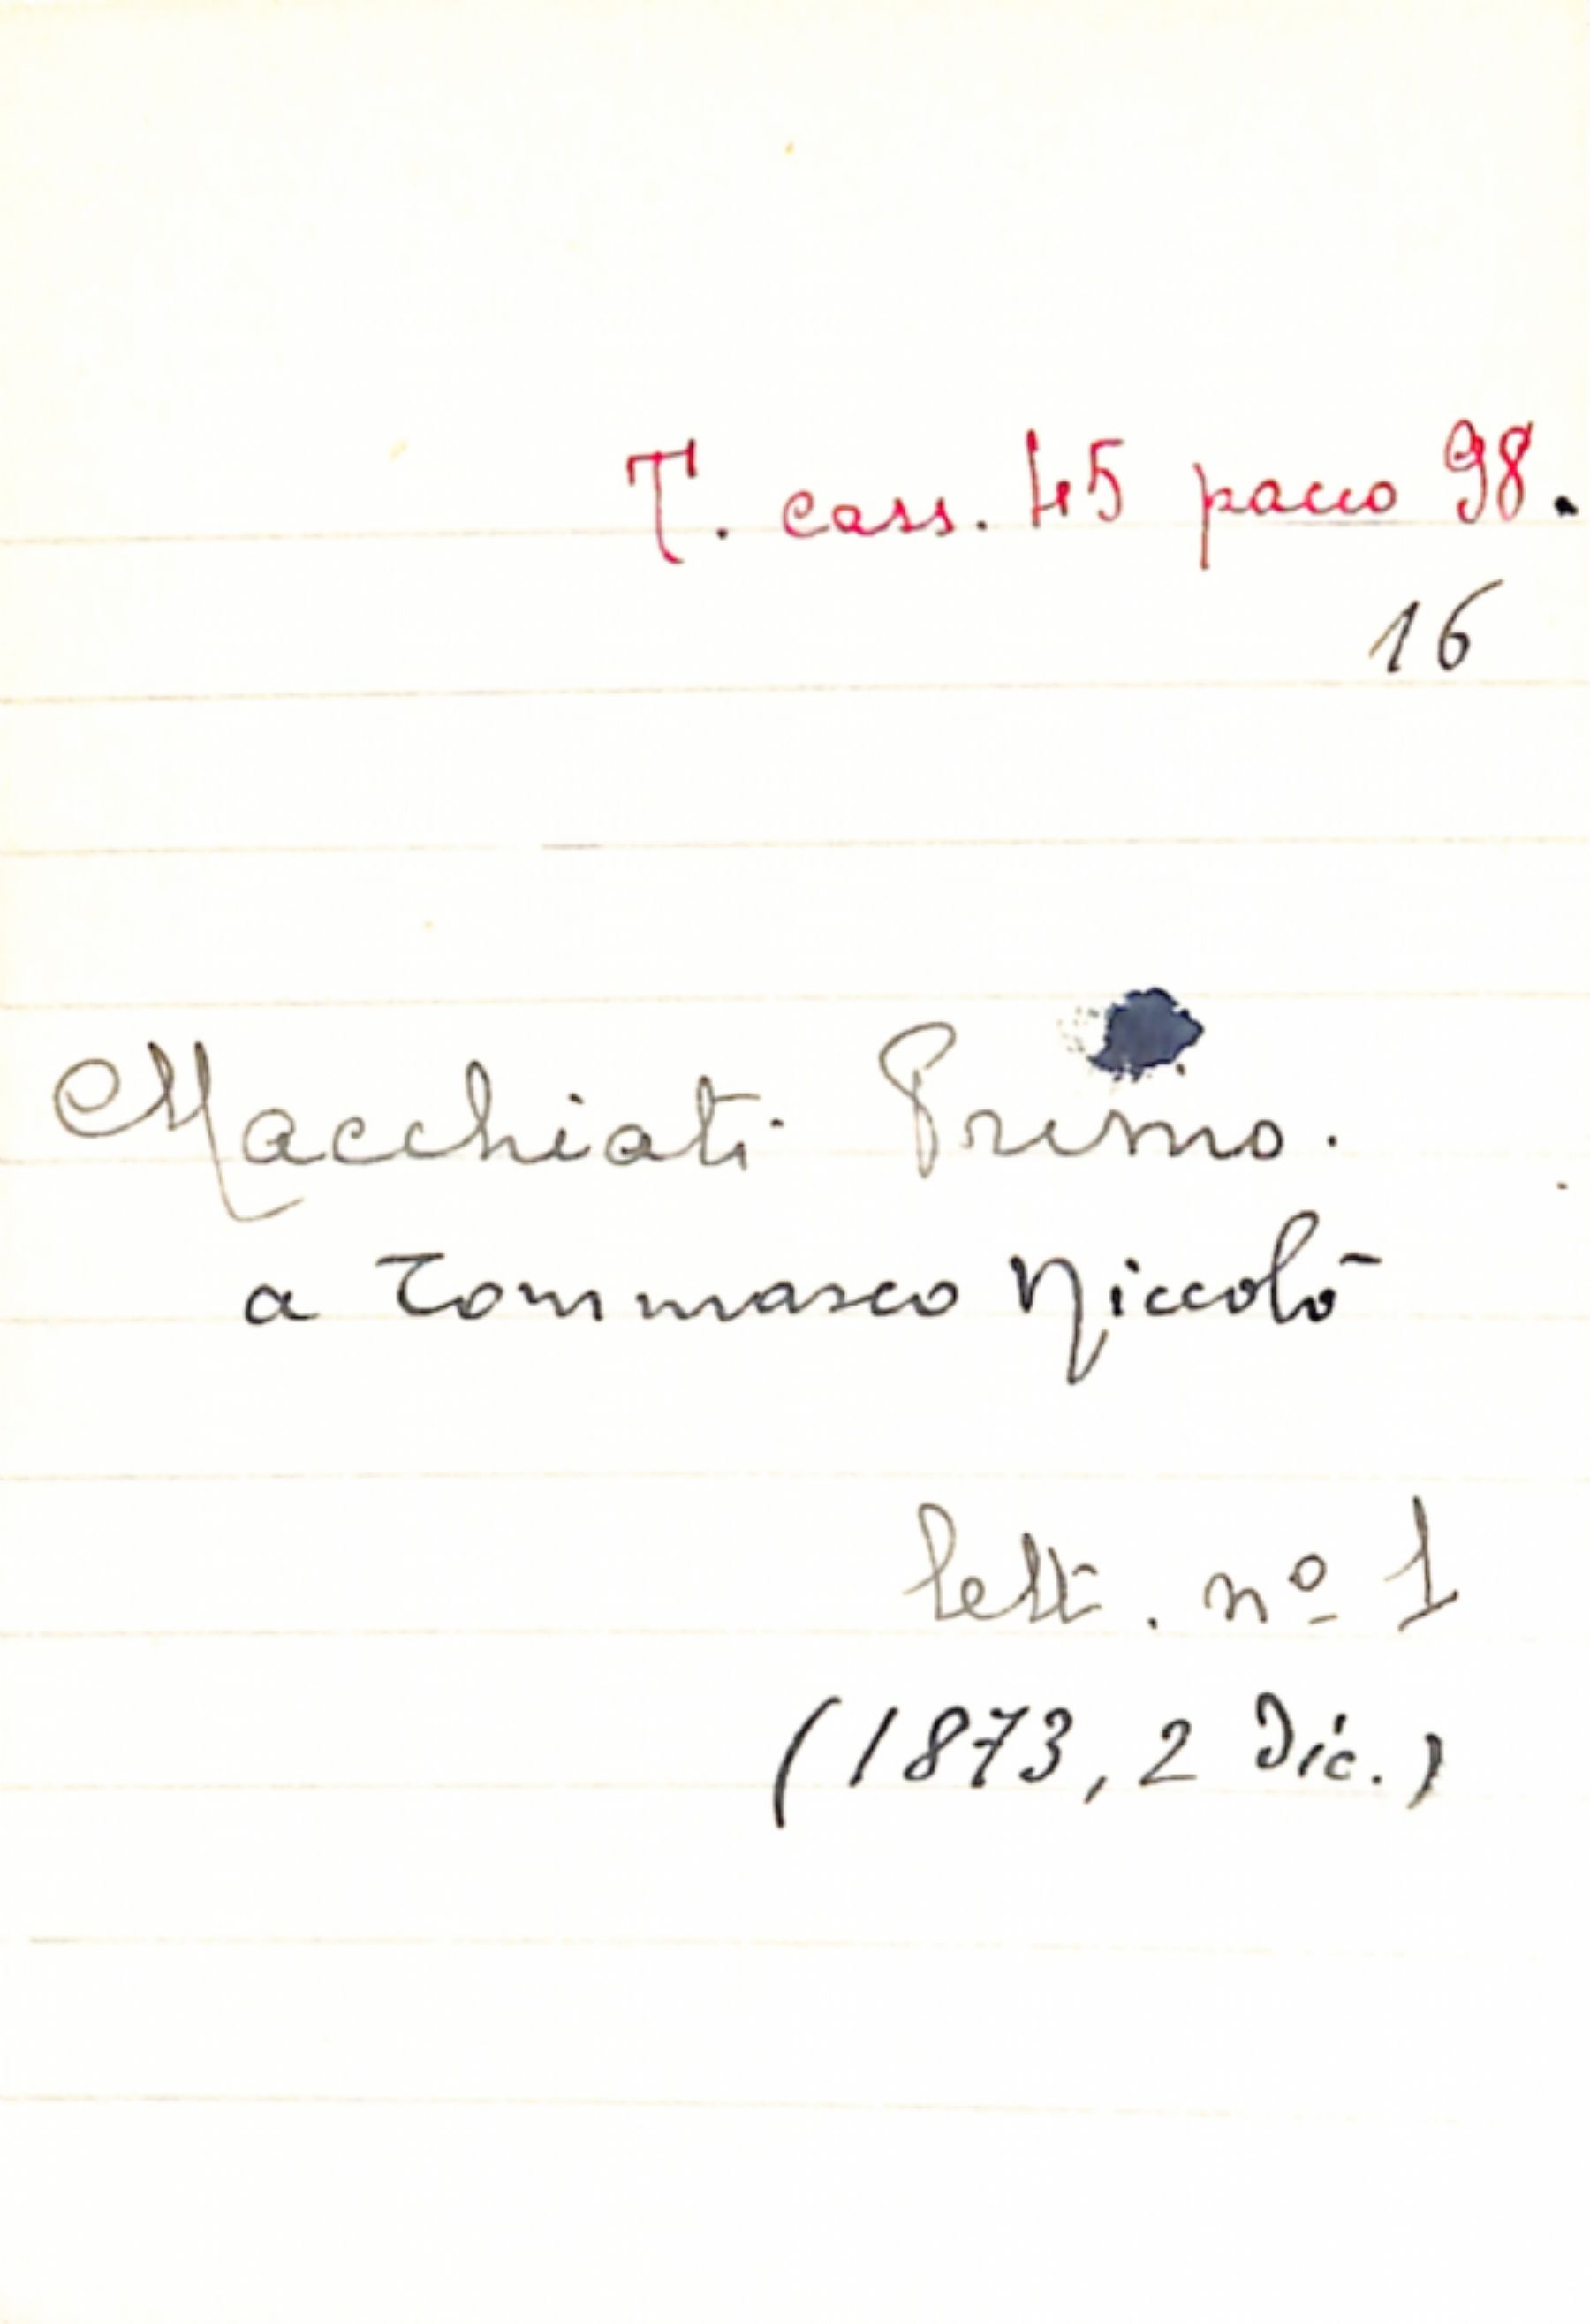 T. cass. 45 pacco 98.
16
Macchiati Primo.
a Tommaseo Niccolò
lett. nº 1
(1873, 2 Dic.)